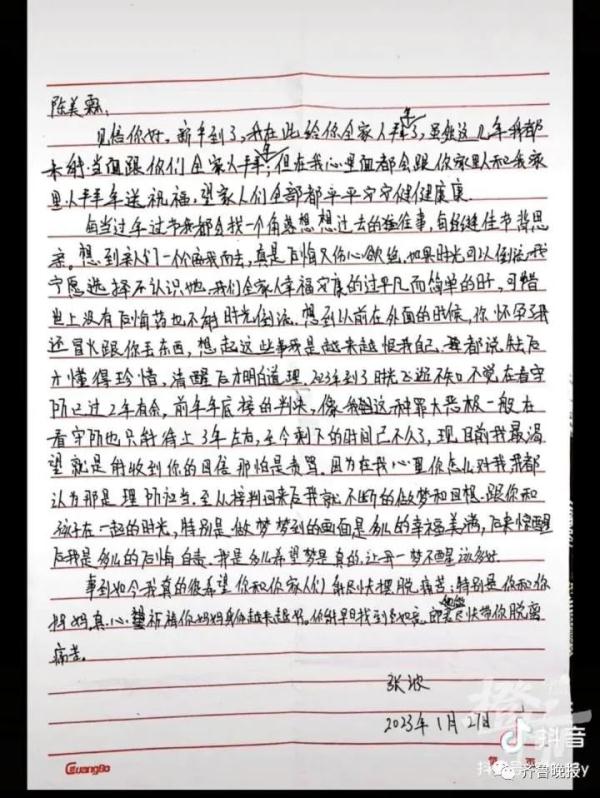 陈美霖:
见信你好。新年到了,我在此给你全家人拜年了,虽然这几年我都
未能当面跟你们全家人拜年,但在我心里面都会跟你家里人和我家
里人拜年送祝福,望家人们全部都平平安安健健康康。
每当过年过节我都会找一个角落想想过去的往事,每逢佳节倍思
亲。想到亲人们一个个离我而去,真是后悔又伤心欲绝,如果时光可以倒流我
宁愿选择不认识她。我们全家人幸福安康的过平凡而简单的日子,可惜
世上没有后悔药也不能时光倒流。想到以前在外面的时候,你怀孕了我
还冒火跟你丢东西,想起这些事我是越来越恨我自己,都说失去后
才懂得珍惜,清醒后才明白道理。2023年到了时光飞逝不知不觉在看守
所已过2年有余,前年年底接的判决,像我们这种罪大恶极一般在
看守所也只能待上3年左右,至今剩下的时间已不久了,现目前我最渴
望就是能收到你的回信那怕是责骂,因为在我心里你怎么对我我都
认为那是理所应当。至从接判回来后我就不断的做梦和回想跟你和
孩子在一起的时光,特别是做梦梦到的画面是多么的幸福美满,后来惊醒
后我是多么的后悔自责。我是多么希望梦是真的,让我一梦不醒该多好。
事到如今我真的很希望你和你家人们能尽快摆脱痛苦;特别是你和你
妈妈,真心祈祷你妈妈身体越来越好。你能早日找到 尽快带你脱离
痛苦。
张波
2023年1月27日
GuangBo
抖音
抖音号
齐鲁晚报